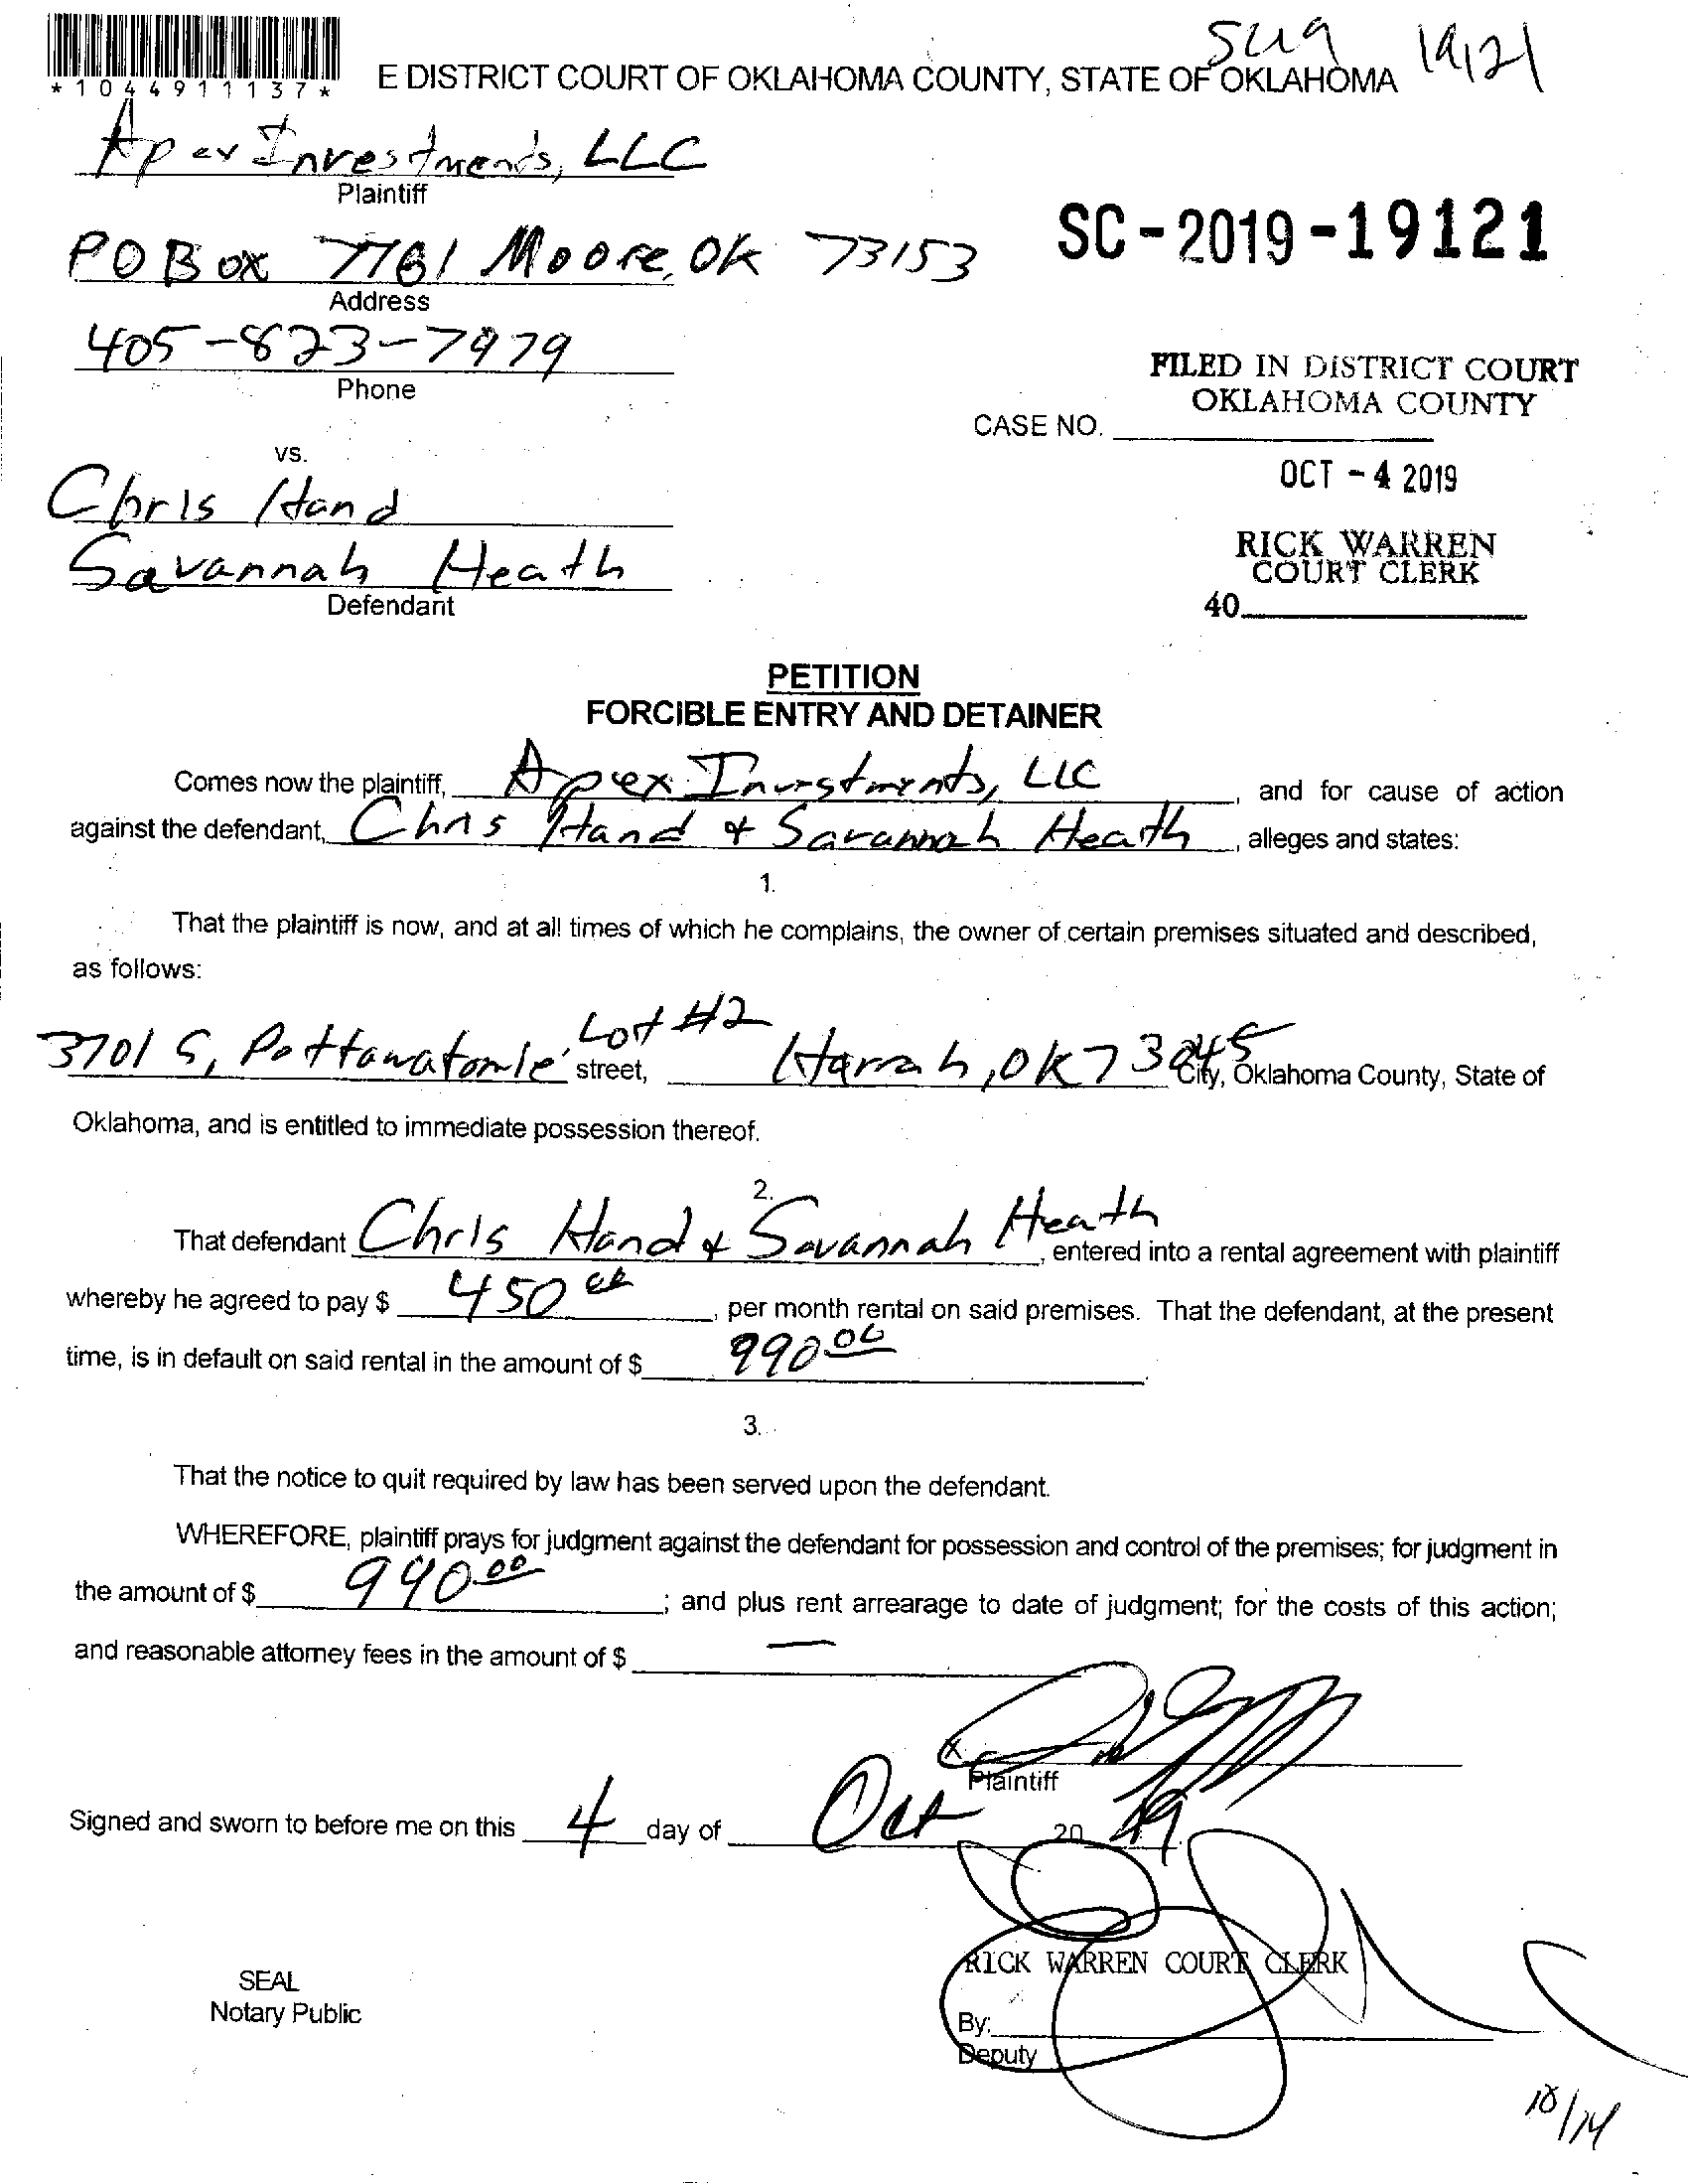 *1044911137*
E DISTRICT COURT OF OKLAHOMA COUNTY, STATE OF OKLAHOMA
Apex Investments, LLC
Plaintiff
SC-2019-19121
PO Box 7761 Moore, OK 73153
Address
405-823-7979
Phone
FILED IN DISTRICT COURT
OKLAHOMA COUNTY
CASE NO.
vs.
OCT - 4 2019
Chris Hand
RICK WARREN
COURT CLERK
Savannah Heath
Defendant
40
PETITION
FORCIBLE ENTRY AND DETAINER
Comes now the plaintiff, Apex Investments, LLC, and for cause of action
against the defendant, Chris Hand & Savannah Heath, alleges and states:
1.
That the plaintiff is now, and at all times of which he complains, the owner of certain premises situated and described,
as follows:
3701 S. Pottawatomie Lot #2 street, Harrah, OK 73045 City, Oklahoma County, State of
Oklahoma, and is entitled to immediate possession thereof.
2.
That defendant Chris Hand & Savannah Heath, entered into a rental agreement with plaintiff
whereby he agreed to pay $ 450, per month rental on said premises. That the defendant, at the present
time, is in default on said rental in the amount of $ 990.00.
3.
That the notice to quit required by law has been served upon the defendant.
WHEREFORE, plaintiff prays for judgment against the defendant for possession and control of the premises; for judgment in
the amount of $ 990.00; and plus rent arrearage to date of judgment; for the costs of this action;
and reasonable attorney fees in the amount of $ —
x
Plaintiff
Signed and sworn to before me on this 4 day of Oct 20 19
RICK WARREN COURT CLERK
SEAL
Notary Public
By:
Deputy
10/14